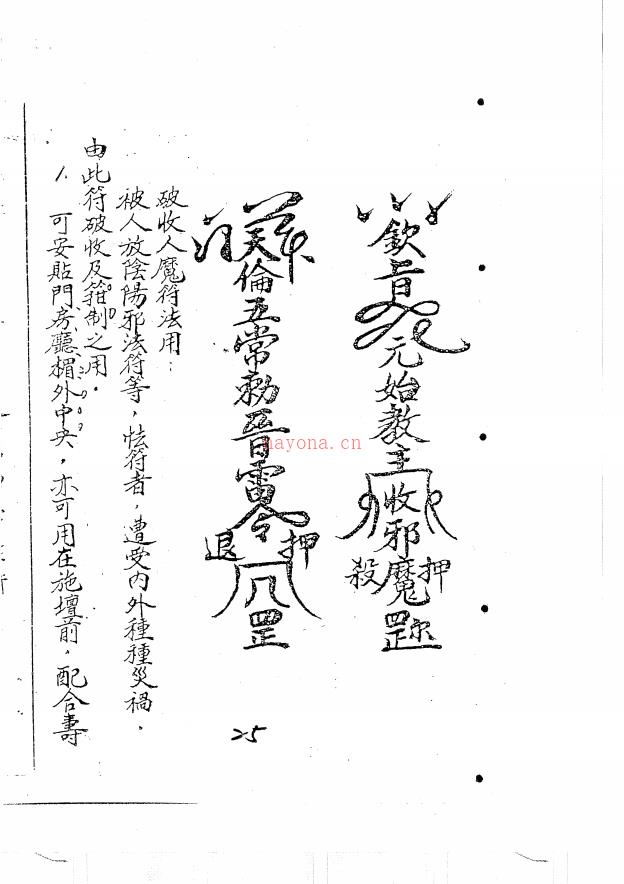 欽旨元始教主收邪魔
押
殺
罡
天倫五常勅雷令
押
退
罡
破收人魔符法用：
被人放陰陽邪法符等，怯符者，遭受内外種種災禍，
由此符破收及箝制之用。
1. 可安貼門房廳楣外中央，亦可用在施壇前，配合壽
25
nayona.cn